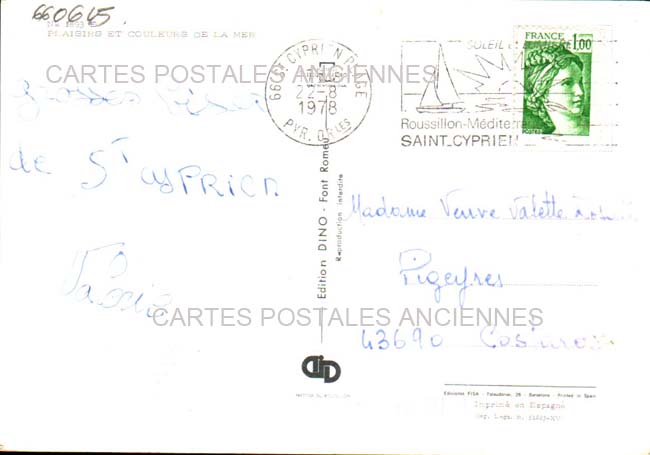 660615
PLAISIRS ET COULEURS DE LA MER
CARTES POSTALES ANCIENNES
de St CYPRIEN
66 ST CYPRIEN PLAGE
22-8
1978
PYR. ORLES
SOLEIL
Roussillon-Méditerra
SAINT-CYPRIEN
FRANCE
1,00
Edition DINO - Font Romeu
Reproduction interdite
Madame Veuve Valette
Pigeyres
43690
CARTES POSTALES ANCIENNES
Ediciones FISA - Palaudarias, 26 - Barcelona - Printed in Spain
Imprimé en Espagne